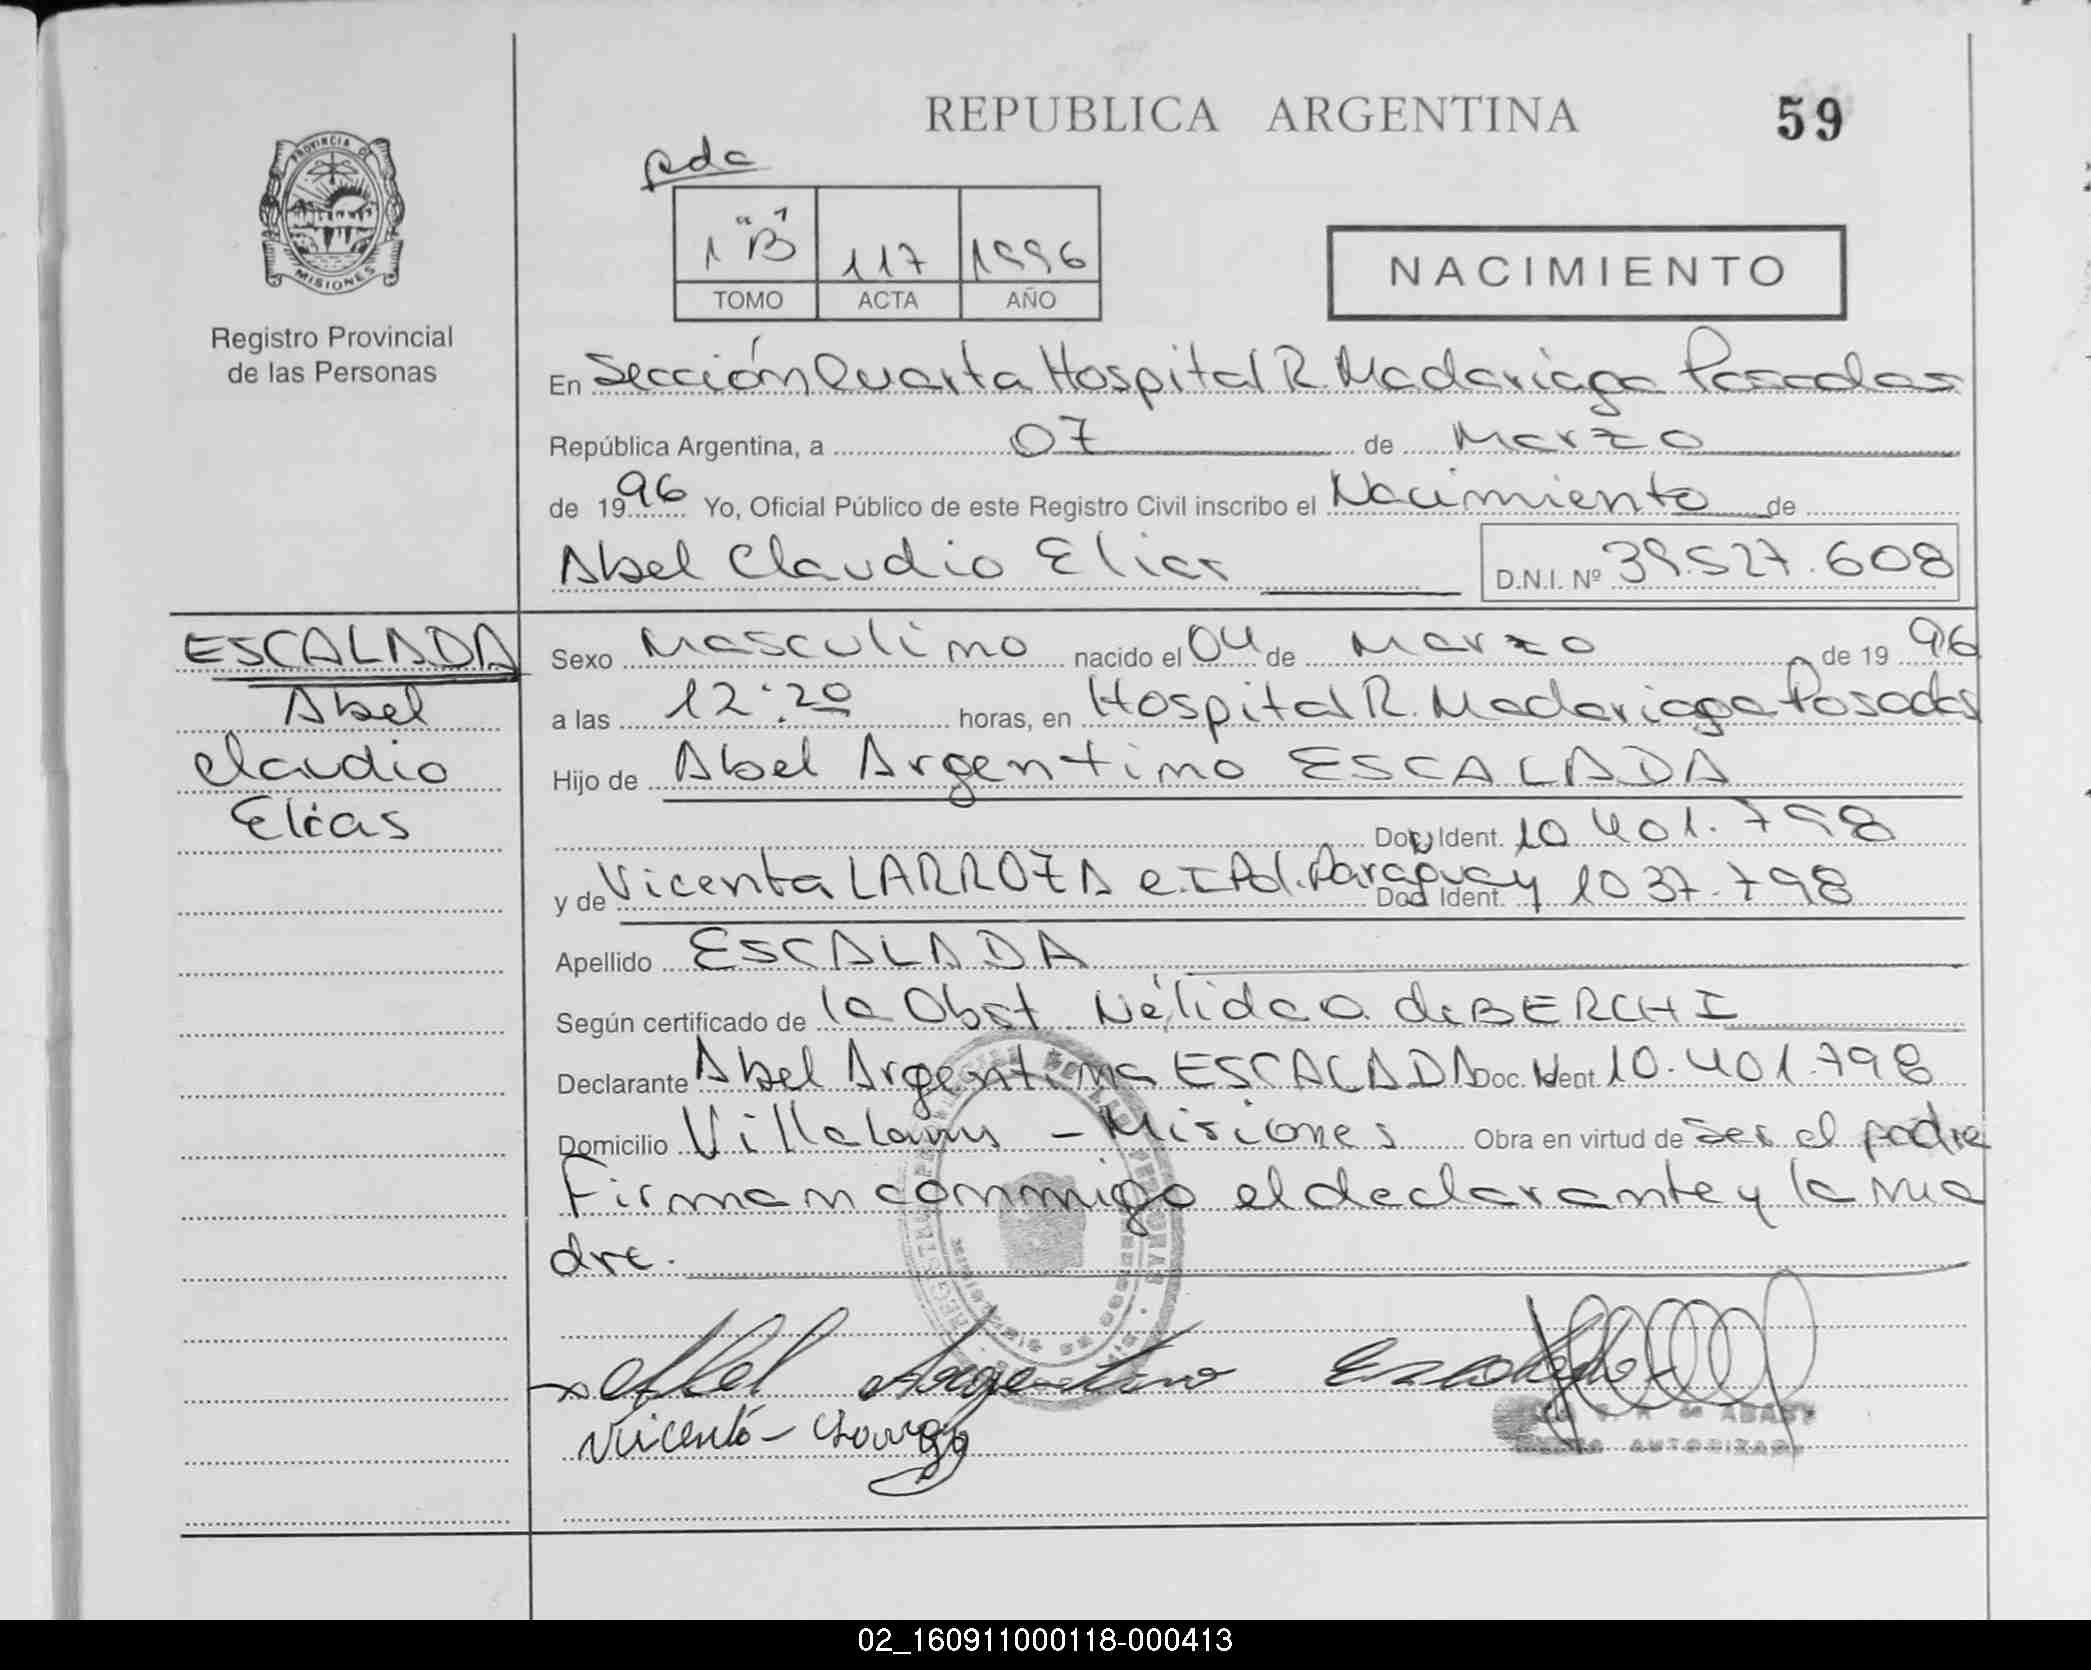 REPUBLICA ARGENTINA
59
PROVINCIA DE
MISIONES
Registro Provincial
de las Personas
pda
1 "B"
117
1996
TOMO
ACTA
AÑO
NACIMIENTO
En Sección Cuarta Hospital R. Madariaga Posadas
República Argentina, a 07 de Marzo
de 1996 Yo, Oficial Público de este Registro Civil inscribo el Nacimiento de
Abel Claudio Elias
D.N.I. Nº 39.527.608
ESCALADA
Abel
Claudio
Elías
Sexo Masculino nacido el 04 de Marzo de 1996
a las 12:20 horas, en Hospital R. Madariaga Posadas
Hijo de Abel Argentino ESCALADA
Doc. Ident. 10.401.798
y de Vicenta LARROZA C.I Pol. Paraguay Doc. Ident. 1037.798
Apellido ESCALADA
Según certificado de la Obst. Nélida O. de BERCHI
Declarante Abel Argentino ESCALADA Doc. Ident. 10.401.798
Domicilio Villa - Misiones Obra en virtud de Ser el padre
Firman conmigo el declarante y la ma
dre.
Abel Argentino Escalada
Vicenta
ABADY
AUTORIZADA
02_160911000118-000413